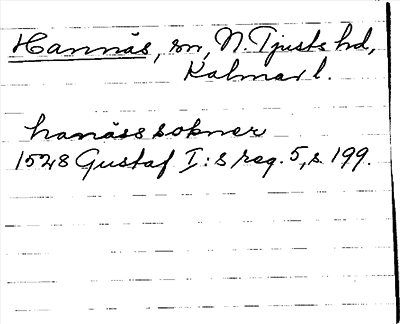 Hannäs, sn, N. Tjusts hd,
Kalmar l.
hanäss sokner
1528 Gustaf I:s reg. 5, s 199.